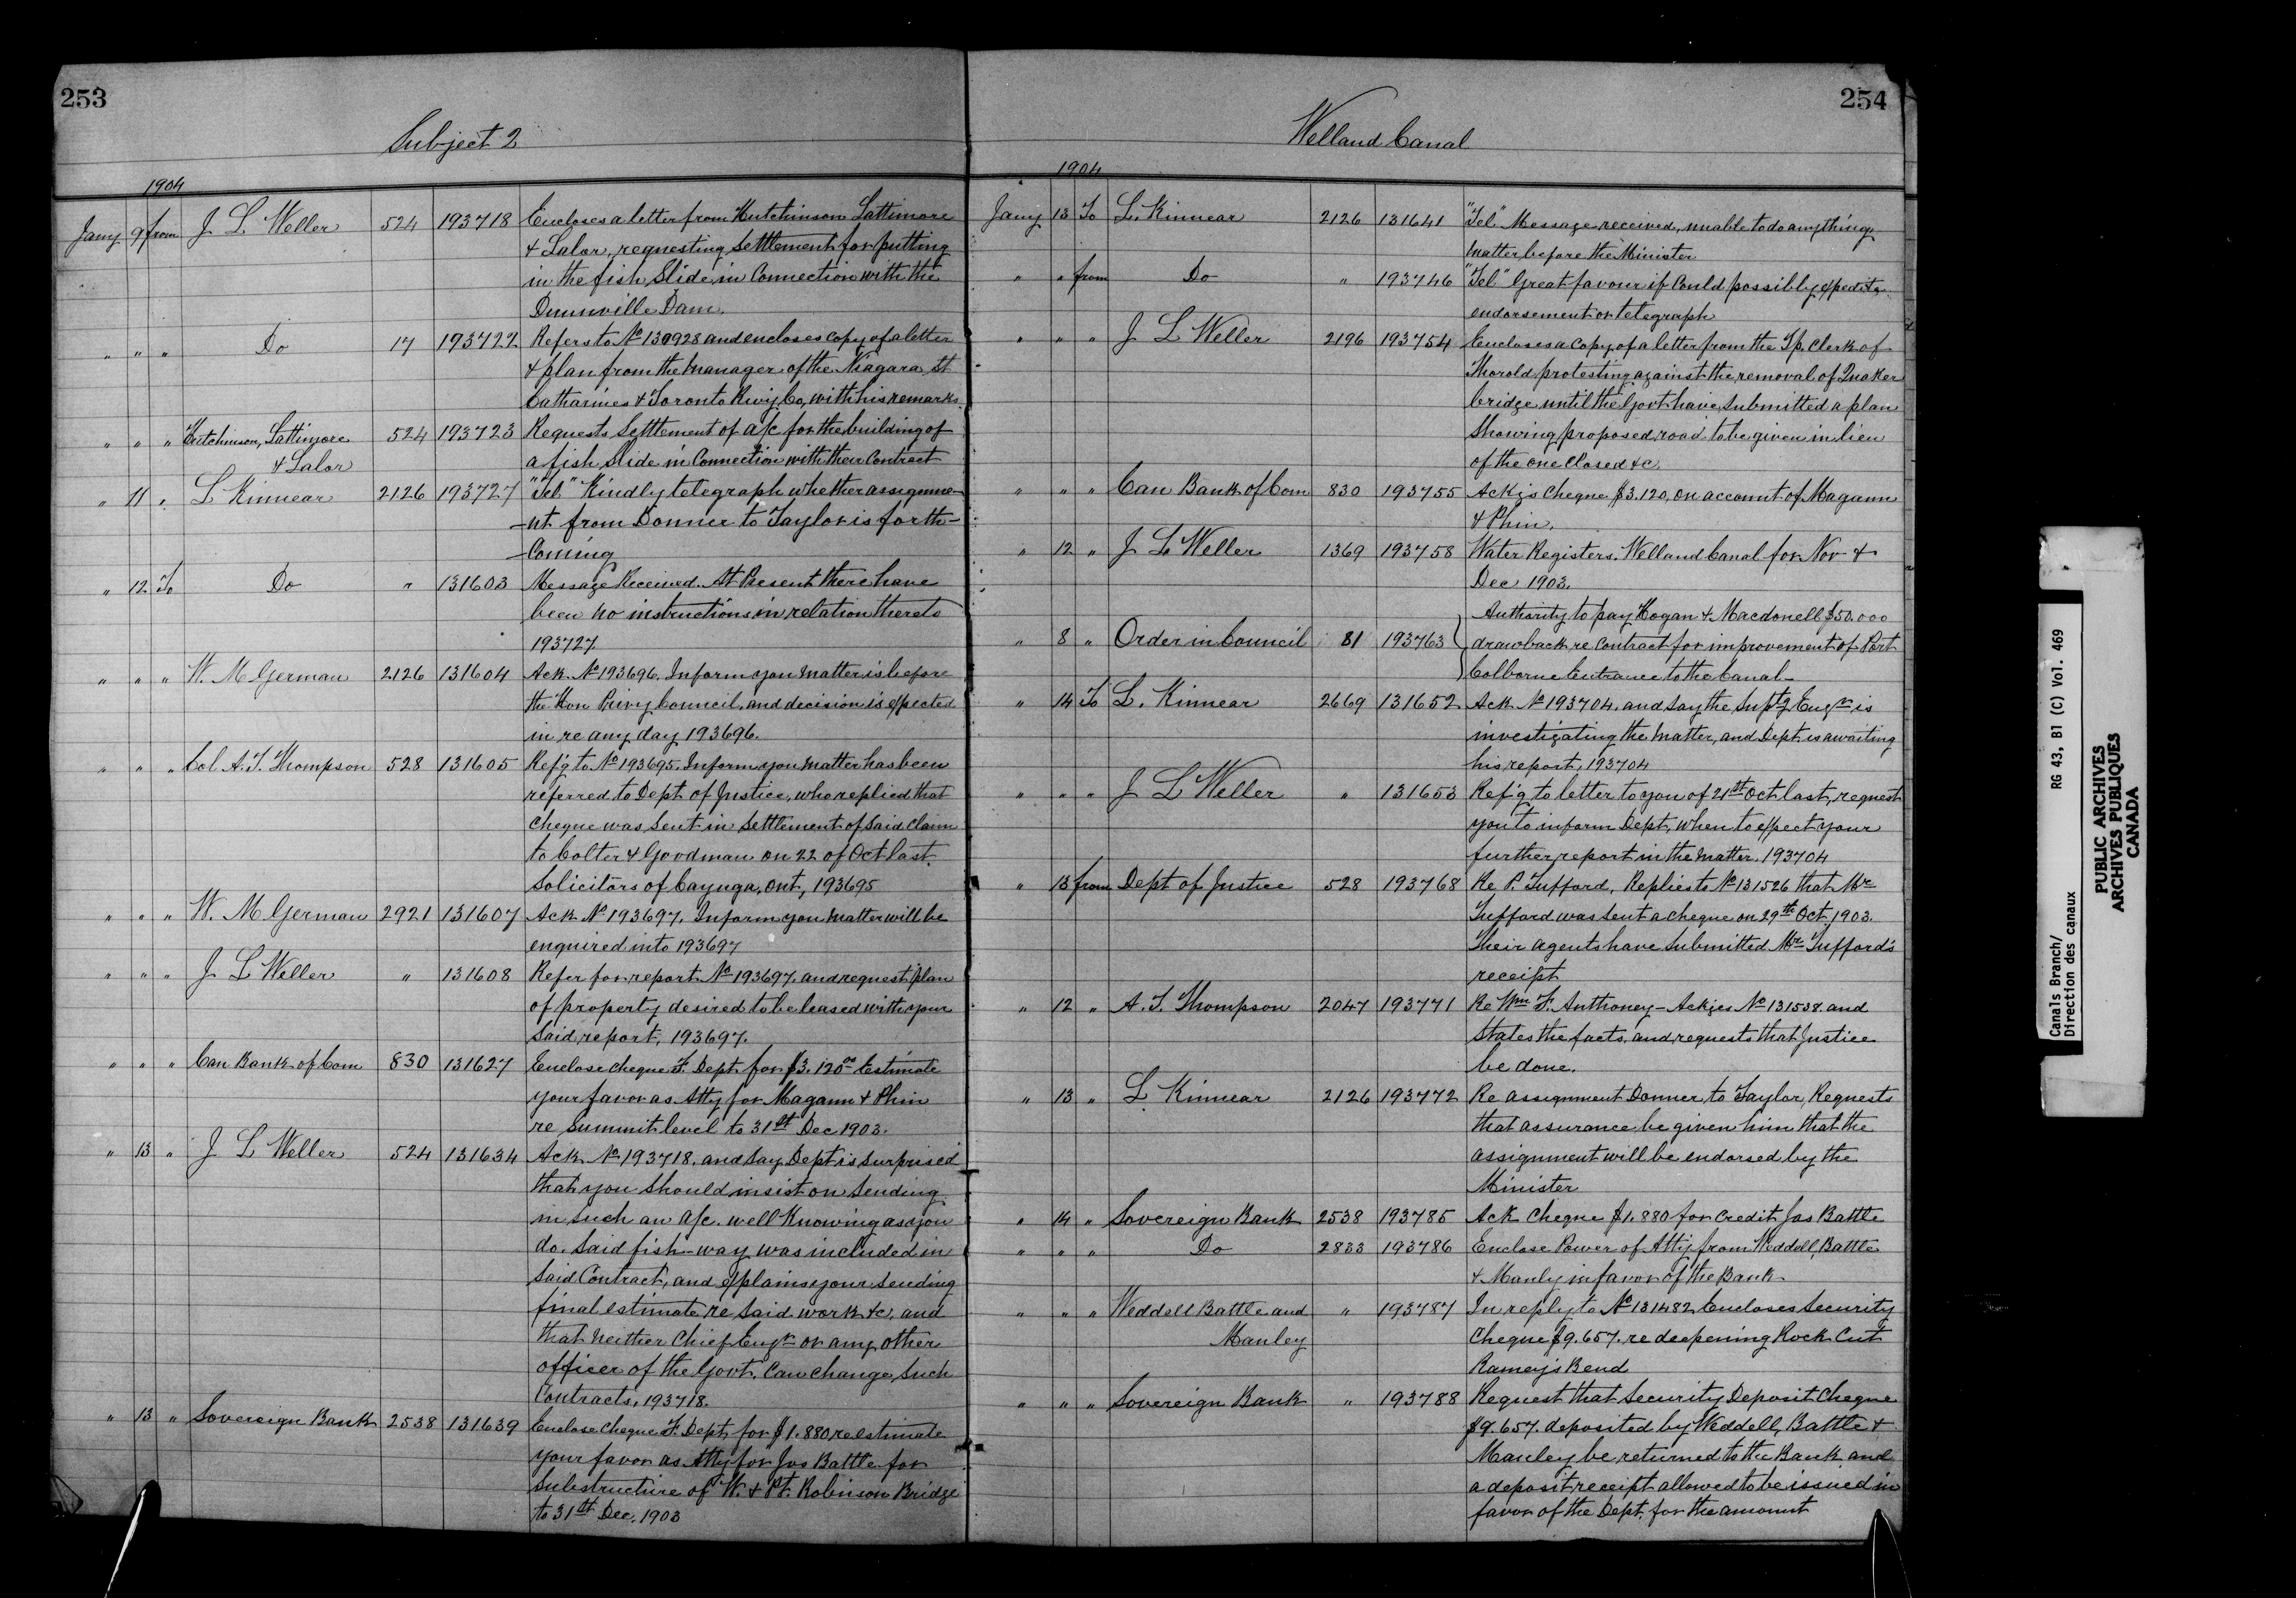 253
Subject 2
1904
Jany 9 from J L Weller 524 193718 Encloses a letter from Hutchinson Lattimore
& Lalor, requesting settlement for putting
in the fish Slide, in Connection with the
Dunnville Dam.
" " " Do 17 193722 Refers to No 130928 and encloses copy of a letter
& plan from the Manager of the Niagara, St
Catharines & Toronto Rwy Co, with his remarks.
" " " Hutchinson, Lattimore 524 193723 Requests Settlement of a/c for the building of
& Lalor a fish Slide in Connection with their Contract
" 11 " L Kinnear 2126 193727 "Tel" Kindly telegraph whether assignme-
-nt from Donner to Taylor is forth-
-Coming
" 12 To Do " 131603 Message Received. At Present there have
been no instructions in relation thereto
193727.
" " " W. M German 2126 131604 Ack. No 193696. Inform you matter is before
the Hon Privy Council, and decision is expected
in re any day 193696.
" " " Col. A. T. Thompson 528 131605 Ref'g to No 193695. Inform you matter has been
referred to Dept of Justice, who replied that
Cheque was sent in settlement of said claim
to Colter & Goodman on 22 of Oct last.
Solicitors of Cayuga, Ont, 193695
" " " W. M German 2921 131607 Ack No 193697. Inform you matter will be
enquired into 193697
" " " J L Weller " 131608 Refer for report No 193697. and request plan
of property desired to be leased with your
said report, 193697.
" " " Can Bank of Com 830 131627 Enclose cheque F. Dept for $3.120 00 Estimate
your favor as Atty for Magann & Phin
re Summit level to 31st Dec 1903.
" 13 " J L Weller 524 131634 Ack No 193718. and say Dept is surprised
that you should insist on sending
in such an a/c. well Knowing as you
do. Said fish-way was included in
said Contract, and explains your sending
final estimate re said work &c, and
that neither Chief Engr or any other
officer of the Govt. Can change such
Contracts, 193718.
" 13 " Sovereign Bank 2538 131639 Enclose cheque F. Dept for $1.880 re estimate
your favor as Atty for Jas Battle for
Substructure of W. & Pt. Robinson Bridge
to 31st Dec. 1903
254
Welland Canal
1904
Jany 13 To L. Kinnear 2126 131641 "Tel" Message received, unable to do anything
matter before the Minister
" " from Do " 193746 "Tel" Great favour if Could possibly expedite
endorsement or telegraph
" " " J L Weller 2196 193754 Encloses a copy of a letter from the Tp. Clerk of
Thorold protesting against the removal of Quaker
bridge until the Govt have submitted a plan
Showing proposed road to be given in lieu
of the one closed &c.
" " " Can Bank of Com 830 193755 Ackgs Cheque $3.120, on account of Magann
& Phin.
" 12 " J L Weller 1369 193758 Water Registers. Welland Canal for Nov &
Dec 1903.
Authority to pay Hogan & Macdonell $50.000
" 8 " Order in Council 81 193763 drawback, re Contract for improvement of Port
Colborne Entrance to the Canal-
" 14 To L. Kinnear 2669 131652 Ack No 193704. and say the Suptg Engr is
investigating the matter, and Dept. is awaiting
his report, 193704
" " " J L Weller " 131653 Ref'g to letter to you of 21st Oct last, request
you to inform Dept, when to expect your
further report in the matter. 193704
" 13 from Dept of Justice 528 193768 Re P. Tufford, Replies to No 131526 that Mr
Tufford was sent a cheque on 29th Oct, 1903.
Their agents have submitted Mr Tufford's
receipt
" 12 " A. T. Thompson 2047 193771 Re Wm F. Anthoney - Ackges No 131538. and
States the facts, and requests that Justice
be done.
" 13 " L Kinnear 2126 193772 Re assignment Donner to Taylor, Requests
that assurance be given him that the
assignment will be endorsed by the
Minister
" 14 " Sovereign Bank 2538 193785 Ack Cheque $1.880 for credit Jas Battle
" " " Do 2833 193786 Enclose Power of Atty from Weddell, Battle
& Manly in favor of the Bank.
" " " Weddell Battle and " 193787 In reply to No 131482 Encloses Security
Manley Cheque $9.657. re deepening Rock Cut
Ramey's Bend
" " " Sovereign Bank " 193788 Request that Security Deposit Cheque
$9.657. deposited by Weddell, Battle &
Manley be returned to the Bank and
a deposit receipt allowed to be issued in
favor of the Dept. for the amount
Canals Branch/ RG 43, B1 (C) Vol. 469
Direction des canaux
PUBLIC ARCHIVES
ARCHIVES PUBLIQUES
CANADA